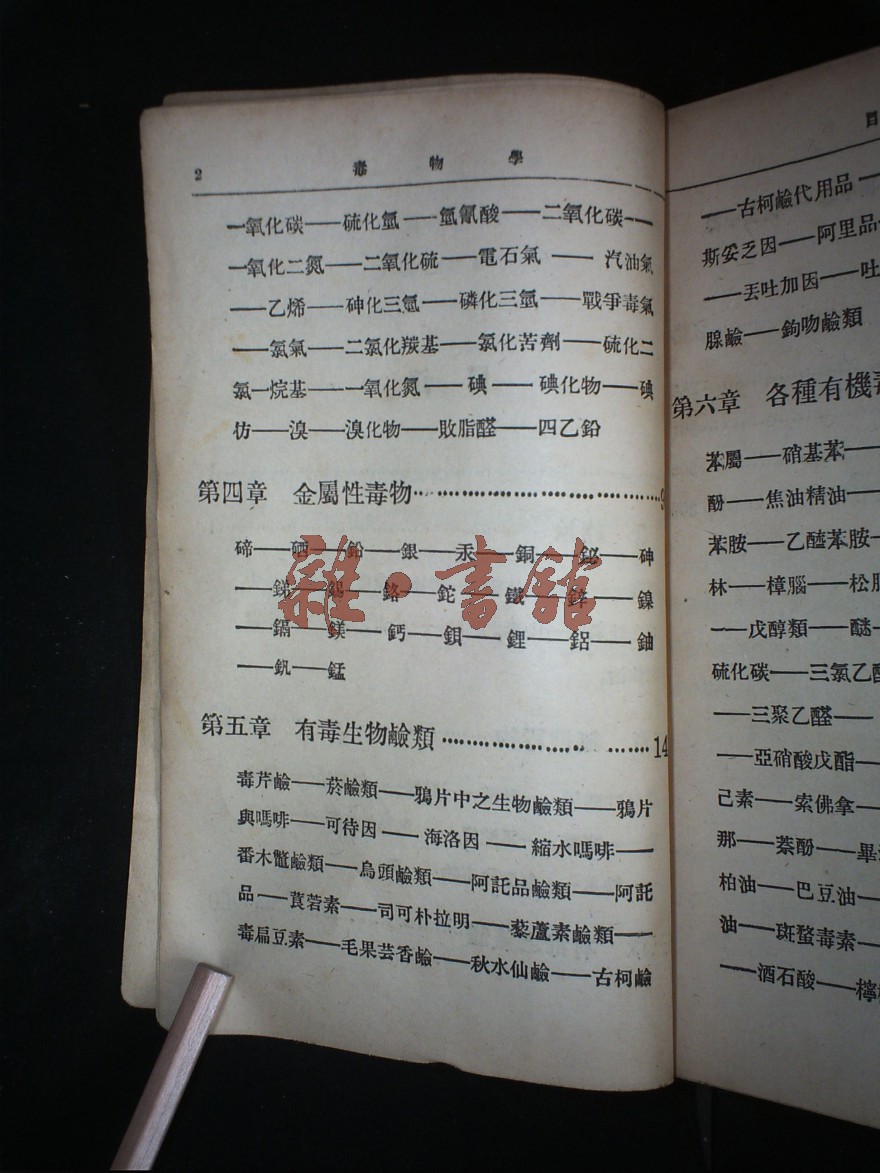 2 毒物學
一氧化碳——硫化氫——氫氰酸——二氧化碳——
一氧化二氮——二氧化硫——電石氣——汽油氣
——乙烯——砷化三氫——磷化三氫——戰爭毒氣
——氯氣——二氯化羰基——氯化苦劑——硫化二
氯一烷基——一氧化氮——碘——碘化物——碘
仿——溴——溴化物——敗脂醛——四乙鉛
第四章 金屬性毒物
碲——硒——鉛——銀——汞——銅——鉍——砷
——銻——錫——鉻——鉈——鐵——鋅——鎳
——鎘——鎂——鈣——鋇——鋰——鋁——鈾
——釩——錳
第五章 有毒生物鹼類
毒芹鹼——菸鹼類——鴉片中之生物鹼類——鴉片
與嗎啡——可待因——海洛因——縮水嗎啡——
番木鼈鹼類——烏頭鹼類——阿託品鹼類——阿託
品——莨菪素——司可朴拉明——藜蘆素鹼類——
毒扁豆素——毛果芸香鹼——秋水仙鹼——古柯鹼
雜·書館
目
——古柯鹼代用品——
斯妥乏因——阿里品
——丟吐加因——吐
腺鹼——鉤吻鹼類
第六章 各種有機毒
苯屬——硝基苯——
酚——焦油精油——
苯胺——乙醯苯胺—
林——樟腦——松
——戊醇類——醚—
硫化碳——三氯乙
——三聚乙醛——
——亞硝酸戊酯—
己素——索佛拿—
那——萘酚——畢
柏油——巴豆油—
油——斑蝥毒素—
——酒石酸——檸